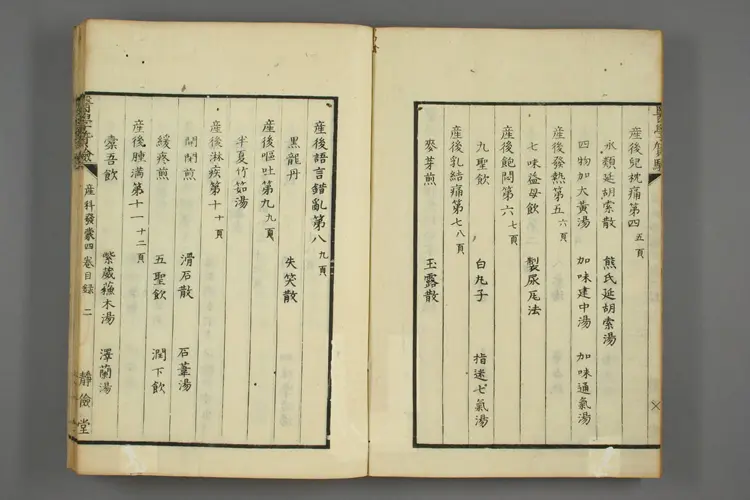 産後兒枕痛第四 五頁
永類延胡索散 熊氏延胡索湯
四物加大黃湯 加味建中湯 加味通氣湯
産後發熱第五 六頁
七味益母飲 製尿疺法
産後飽悶第六 七頁
九聖飲 白丸子 指迷七氣湯
産後乳結痛第七 八頁
麥芽煎 玉露散
産後語言錯亂第八 九頁
黑龍丹 失笑散
産後嘔吐第九 九頁
半夏竹茹湯
産後淋疾第十 十頁
開関煎 滑石散 石葦湯
緩疼煎 五聖飲 潤下飲
産後腫滿第十一 十二頁
橐吾飲 紫葳蘓木湯 澤蘭湯
産科發蒙四卷目録 二
靜儉堂